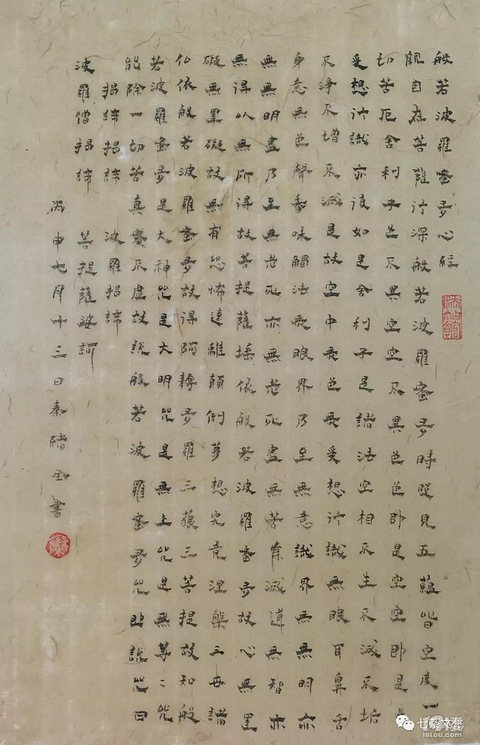 般若波羅蜜多心經
觀自在菩薩行深般若波羅蜜多時照見五蘊皆空度一
切苦厄舍利子色不異空空不異色色即是空空即是色
受想行識亦復如是舍利子是諸法空相不生不滅不垢
不淨不增不減是故空中無色無受想行識無眼耳鼻舌
身意無色聲香味觸法無眼界乃至無意識界無無明亦
無無明盡乃至無老死亦無老死盡無苦集滅道無智亦
無得以無所得故菩提薩埵依般若波羅蜜多故心無罣
礙無罣礙故無有恐怖遠離顛倒夢想究竟涅槃三世諸
仏依般若波羅蜜多故得阿耨多羅三藐三菩提故知般
若波羅蜜多是大神咒是大明咒是無上咒是無等々咒
能除一切苦真實不虛故說般若波羅蜜多咒即說咒曰
揭諦揭諦 波羅揭諦
波羅僧揭諦 菩提薩婆訶
丙申七月十三日秦緒書
19lou.com